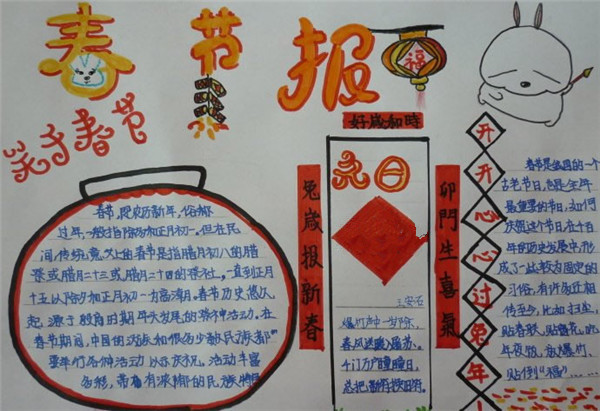 春节报
福
关于春节
春节,即农历新年,俗称
过年,一般指除夕和正月初一。但在民
间传统意义上的春节是指腊月初八的腊
祭或腊月二十三或腊月二十四的祭灶。一直到正月
十五以除夕和正月初一为高潮。春节历史悠久
起源于殷商时期年头岁尾的祭神活动。在
春节期间,中国的汉族和很多少数民族都
要举行各种活动以示庆祝。活动丰富
多彩,带有浓郁的民族特
好歲和時
兔歲报新春
卯門生喜氣
元日
王安石
爆竹声中一岁除,
春风送暖入屠苏。
千门万户曈曈日,
总把新符换旧符
开开心心过兔年
春节是我国的一个
古老节日,也是全年
最重要的节日,如何
庆祝这个节日在千百
年的历史发展中,形
成了一些较为固定的
习俗,有许多还相
传至今,比如扫尘,
贴春联,贴窗花,吃
年夜饭,放爆竹、
贴倒"福"……